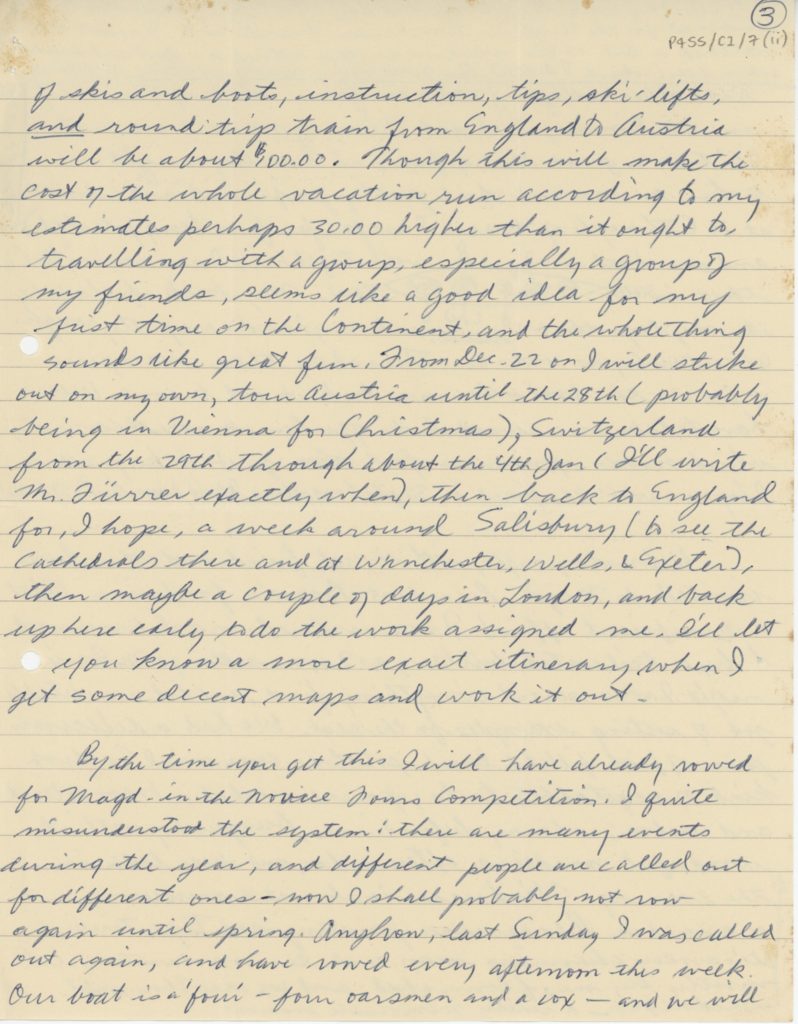 3
P455/C1/7(ii)
of skis and boots, instruction, tips, ski-lifts,
and round trip train from England to Austria
will be about $100.00. Though this will make the
cost of the whole vacation run according to my
estimates perhaps 30.00 higher than it ought to,
travelling with a group, especially a group of
my friends, seems like a good idea for my
first time on the Continent, and the whole thing
sounds like great fun. From Dec. 22 on I will strike
out on my own, tour Austria until the 28th (probably
being in Vienna for Christmas), Switzerland
from the 29th through about the 4th Jan (I'll write
Mr. Fürrer exactly when), then back to England
for, I hope, a week around Salisbury (to see the
Cathedrals there and at Winchester, Wells, & Exeter),
then maybe a couple of days in London, and back
up here early to do the work assigned me. I'll let
you know a more exact itinerary when I
get some decent maps and work it out.
By the time you get this I will have already rowed
for Magd. in the Novice Fours Competition. I quite
misunderstood the system: there are many events
during the year, and different people are called out
for different ones - now I shall probably not row
again until spring. Anyhow, last Sunday I was called
out again, and have rowed every afternoon this week.
Our boat is a 'four' - four oarsmen and a cox - and we will